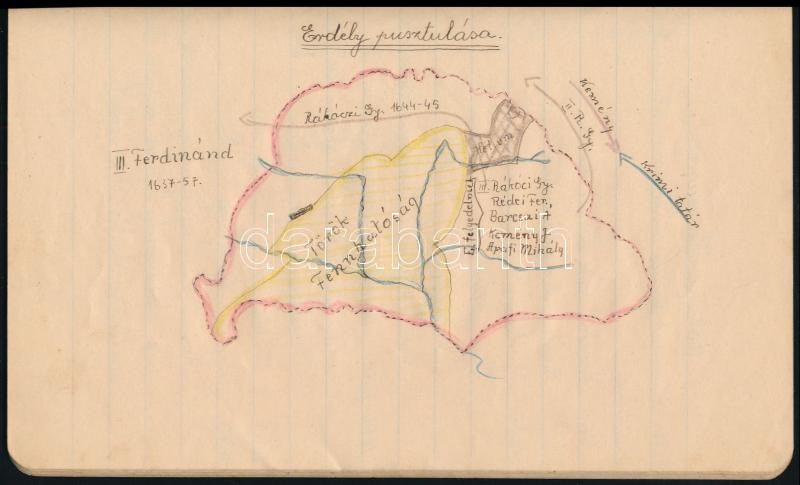 Erdély pusztulása.
Rákóczi Gy. 1644-45
Kemény
II. R. Gy.
Krimi tatár
III. Ferdinánd
1637-57.
Hét vm
5 fejedelmet
III. Rákóci Gy.
Rédei Fer,
Barcsai
Kemény J.
Apafi Mihály
Török
Fennhatóság
darabanth